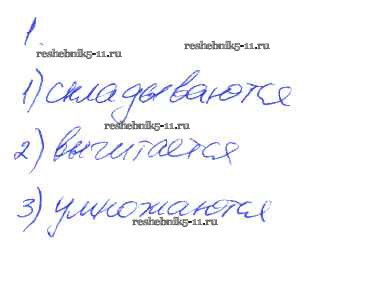 1.
reshebnik5-11.ru
reshebnik5-11.ru
1) складываются
reshebnik5-11.ru
2) вычитается
3) умножаются
reshebnik5-11.ru